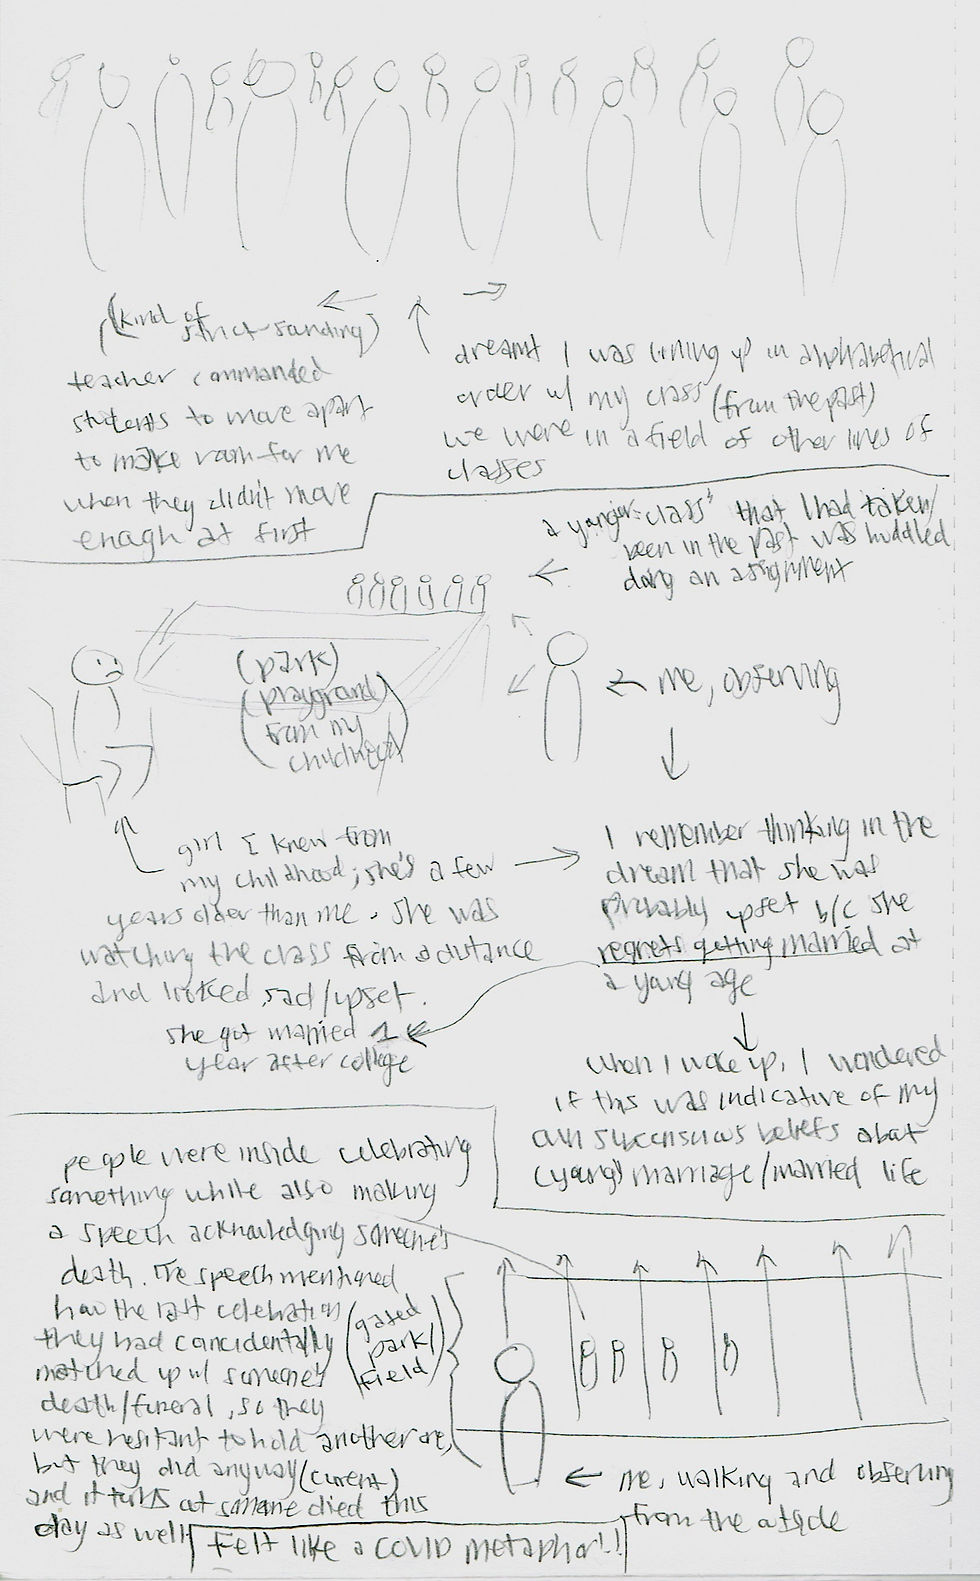 (kind of
strict-sounding)
teacher commanded
students to move apart
to make room for me
when they didn't move
enough at first
dreamt I was lining up in alphabetical
order w/ my class (from the past)
we were in a field of other lines of
classes
a younger "class" that I had taken/
been in the past was huddled
doing an assignment
(park)
(playground
from my
childhood)
me, observing
girl I knew from
my childhood; she's a few
years older than me. She was
watching the class from a distance
and looked sad/upset.
she got married 1
year after college
I remember thinking in the
dream that she was
probably upset b/c she
regrets getting married at
a young age
when I woke up, I wondered
if this was indicative of my
own subconscious beliefs about
(young) marriage/married life
people were inside celebrating
something while also making
a speech acknowledging someone's
death. The speech mentioned
how the last celebration
they had coincidentally
matched up w/ someone's
death/funeral, so they
were hesitant to hold another one,
but they did anyway (current)
and it turns out someone died this
day as well
(gated
park/
field)
me, walking and observing
from the outside
felt like a COVID metaphor!!